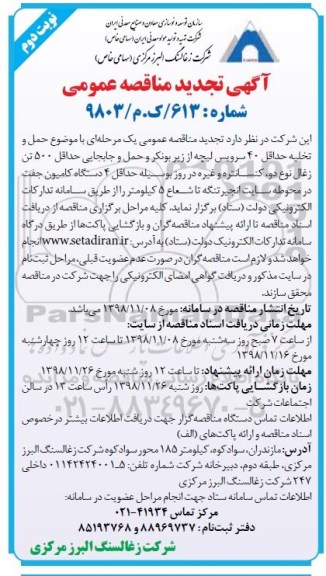 نوبت دوم
سازمان توسعه و نوسازی معادن و صنایع معدنی ایران
شرکت تهیه و تولید مواد معدنی ایران (سهامی خاص)
شرکت زغالسنگ البرز مرکزی (سهامی خاص)
آگهی تجدید مناقصه عمومی
شماره : ۶۱۳/ک.م/۹۸۰۳
این شرکت در نظر دارد تجدید مناقصه عمومی یک مرحله‌ای با موضوع حمل و
تخلیه حداقل ۴۰ سرویس لیچه از زیر بونکر و حمل و جابجایی حداقل ۵۰۰ تن
زغال نوع دو، کنسانتره و غیره در روز بوسیله حداقل ۴ دستگاه کامیون جفت
در محوطه سایت انجیرتنگه تا شعاع ۵ کیلومتر را از طریق سامانه تدارکات
الکترونیکی دولت (ستاد) برگزار نماید. کلیه مراحل برگزاری مناقصه از دریافت
اسناد مناقصه تا ارائه پیشنهاد مناقصه‌گران و بازگشایی پاکت‌ها از طریق درگاه
سامانه تدارکات الکترونیک دولت (ستاد) به آدرس: www.setadiran.ir انجام
خواهد شد و لازم است مناقصه‌گران در صورت عدم عضویت قبلی، مراحل ثبت‌نام
در سایت مذکور و دریافت گواهی امضای الکترونیکی را جهت شرکت در مناقصه
محقق سازند.
تاریخ انتشار مناقصه در سامانه: مورخ ۱۳۹۸/۱۱/۰۸ می‌باشد.
مهلت زمانی دریافت اسناد مناقصه از سایت:
از ساعت ۷ صبح روز سه‌شنبه مورخ ۱۳۹۸/۱۱/۰۸ تا ساعت ۱۲ روز چهارشنبه
مورخ ۱۳۹۸/۱۱/۱۶
مهلت زمان ارائه پیشنهاد: تا ساعت ۱۲ روز شنبه مورخ ۱۳۹۸/۱۱/۲۶
زمان بازگشایی پاکت‌ها: روز شنبه ۱۳۹۸/۱۱/۲۶ راس ساعت ۱۳ در سالن
اجتماعات شرکت
اطلاعات تماس دستگاه مناقصه‌گزار جهت دریافت اطلاعات بیشتر در خصوص
اسناد مناقصه و ارائه پاکت‌های (الف)
آدرس: مازندران، سوادکوه، کیلومتر ۱۸۵ محور سوادکوه شرکت زغالسنگ البرز
مرکزی، طبقه دوم، دبیرخانه شرکت شماره تلفن: ۵_۰۱۱۴۲۴۲۴۰۰۱ داخلی
۲۴۷ شرکت زغالسنگ البرز مرکزی
اطلاعات تماس سامانه ستاد جهت انجام مراحل عضویت در سامانه:
مرکز تماس ۴۱۹۳۴-۰۲۱
دفتر ثبت‌نام: ۸۸۹۶۹۷۳۷ و ۸۵۱۹۳۷۶۸
شرکت زغالسنگ البرز مرکزی